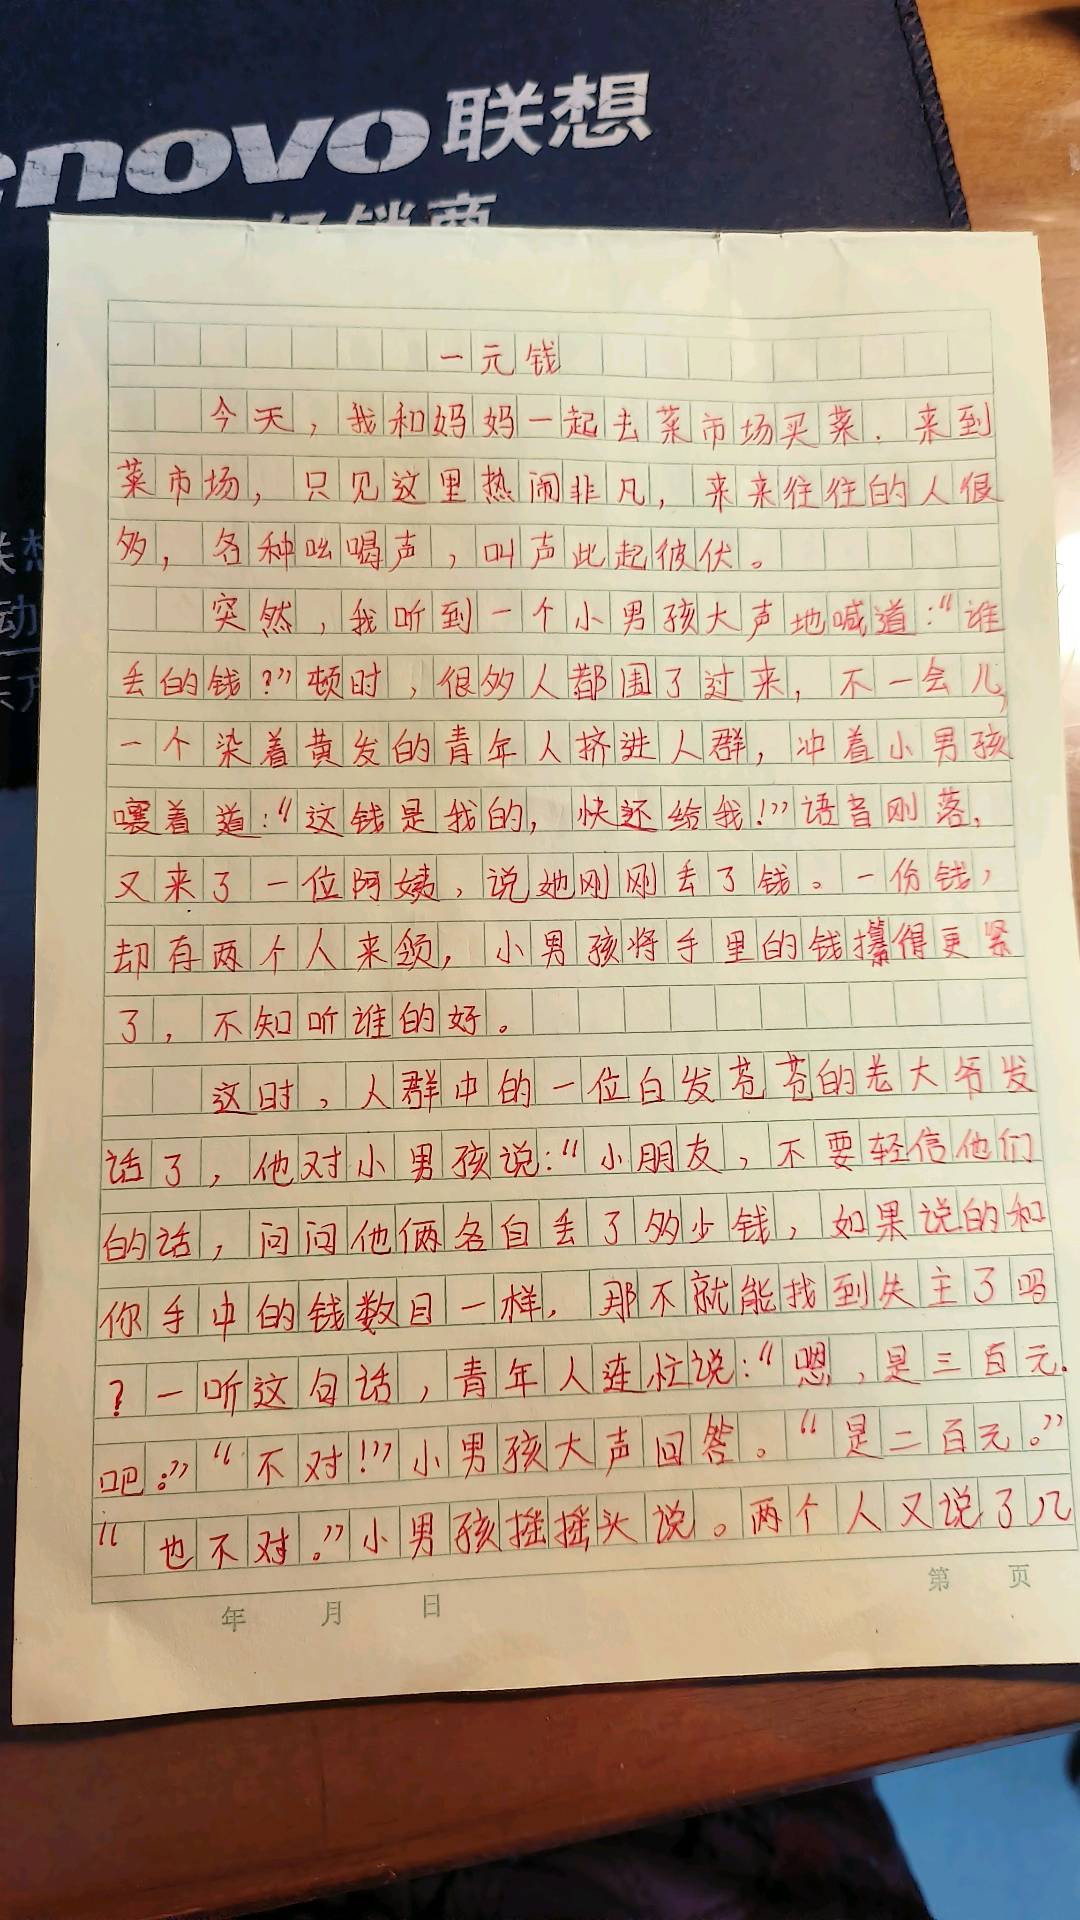 enovo联想
经销商
一元钱
今天，我和妈妈一起去菜市场买菜．来到
菜市场，只见这里热闹非凡，来来往往的人很
多，各种吆喝声，叫声此起彼伏。
突然，我听到一个小男孩大声地喊道：“谁
丢的钱？”顿时，很多人都围了过来，不一会儿，
一个染着黄发的青年人挤进人群，冲着小男孩
嚷着道：“这钱是我的，快还给我！”语音刚落，
又来了一位阿姨，说她刚刚丢了钱。一份钱，
却有两个人来领，小男孩将手里的钱攥得更紧
了，不知听谁的好。
这时，人群中的一位白发苍苍的老大爷发
话了，他对小男孩说：“小朋友，不要轻信他们
的话，问问他俩各自丢了多少钱，如果说的和
你手中的钱数目一样，那不就能找到失主了吗
？一听这句话，青年人连忙说：“嗯，是三百元．
吧。”“不对！”小男孩大声回答。“是二百元。”
“也不对。”小男孩摇摇头说。两个人又说了几
年 月 日
第 页